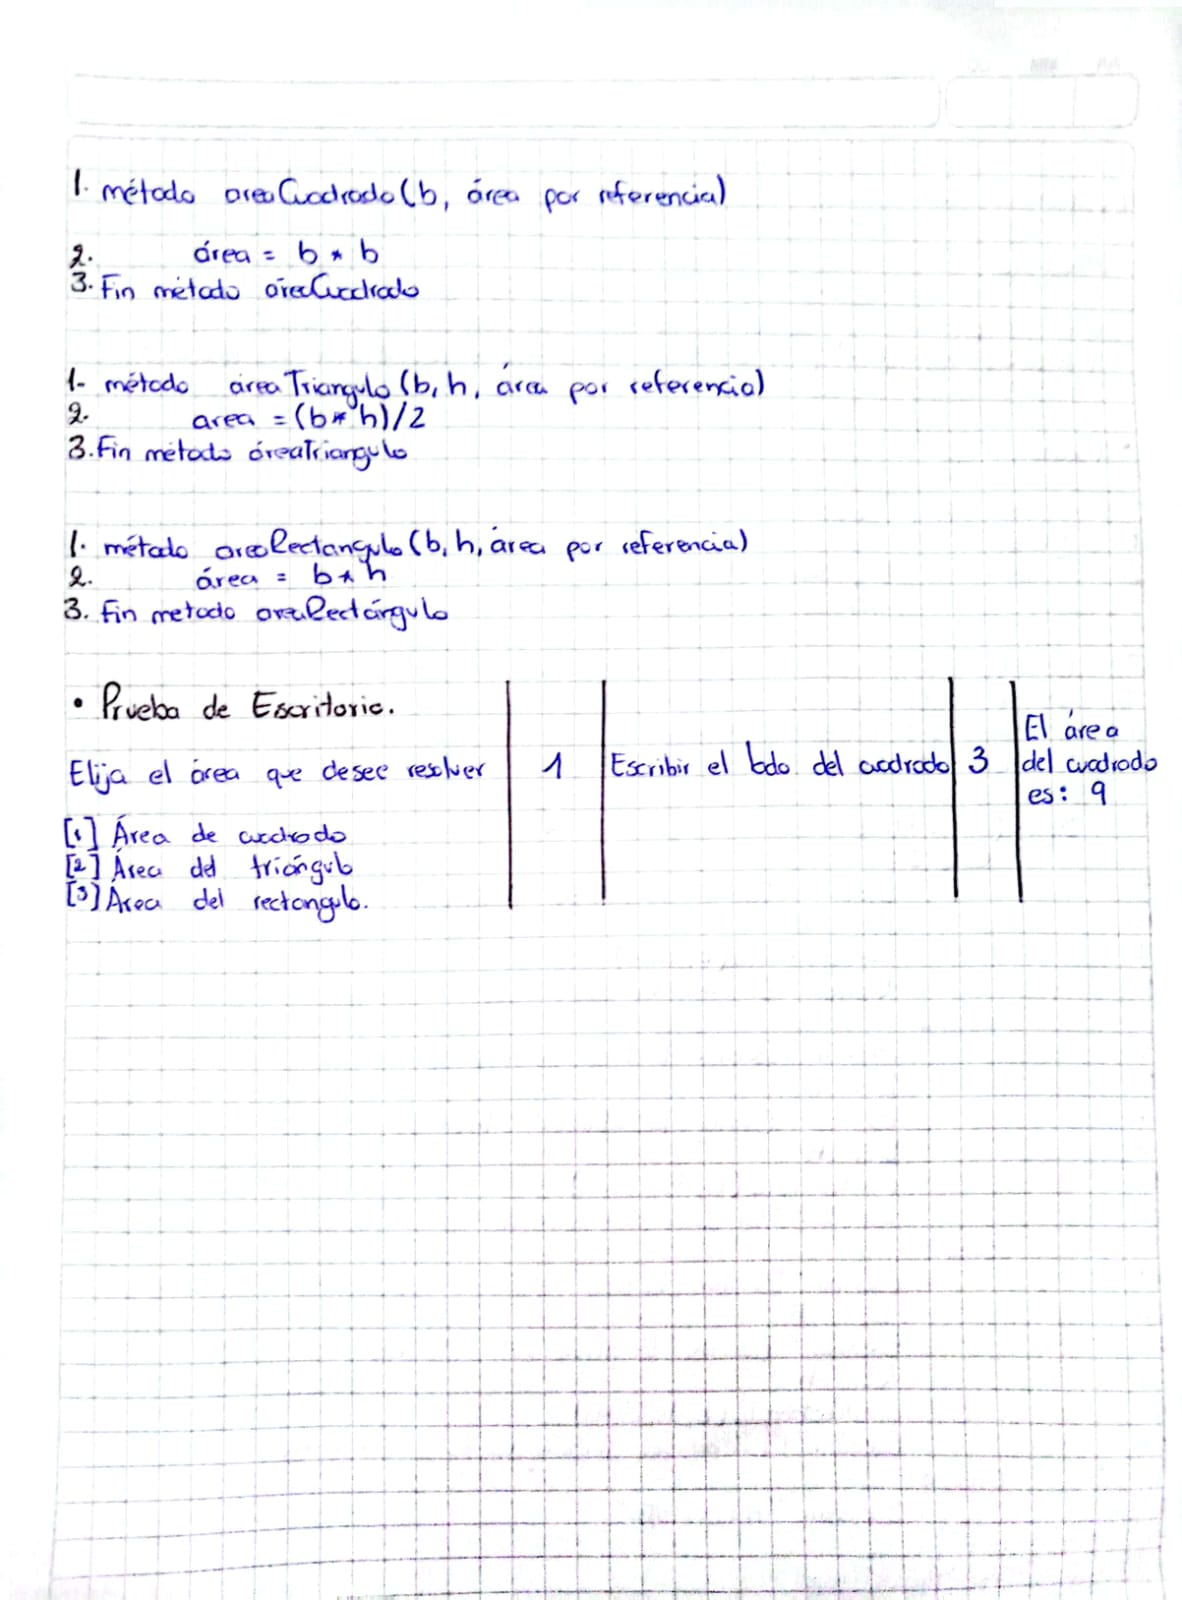 1. método areaCuadrado(b, área por referencia)
2. área = b * b
3. Fin método áreaCuadrado
1- método áreaTriangulo(b, h, área por referencia)
2. area = (b * h)/2
3. Fin método áreaTriangulo
1. método areaRectangulo(b, h, área por referencia)
2. área = b * h
3. Fin metodo areaRectángulo
• Prueba de Escritorio.
Elija el área que desee resolver
[1] Área de cuadrado
[2] Área del triángulo
[3] Área del rectangulo.
1
Escribir el lado del cuadrado
3
El área
del cuadrado
es: 9